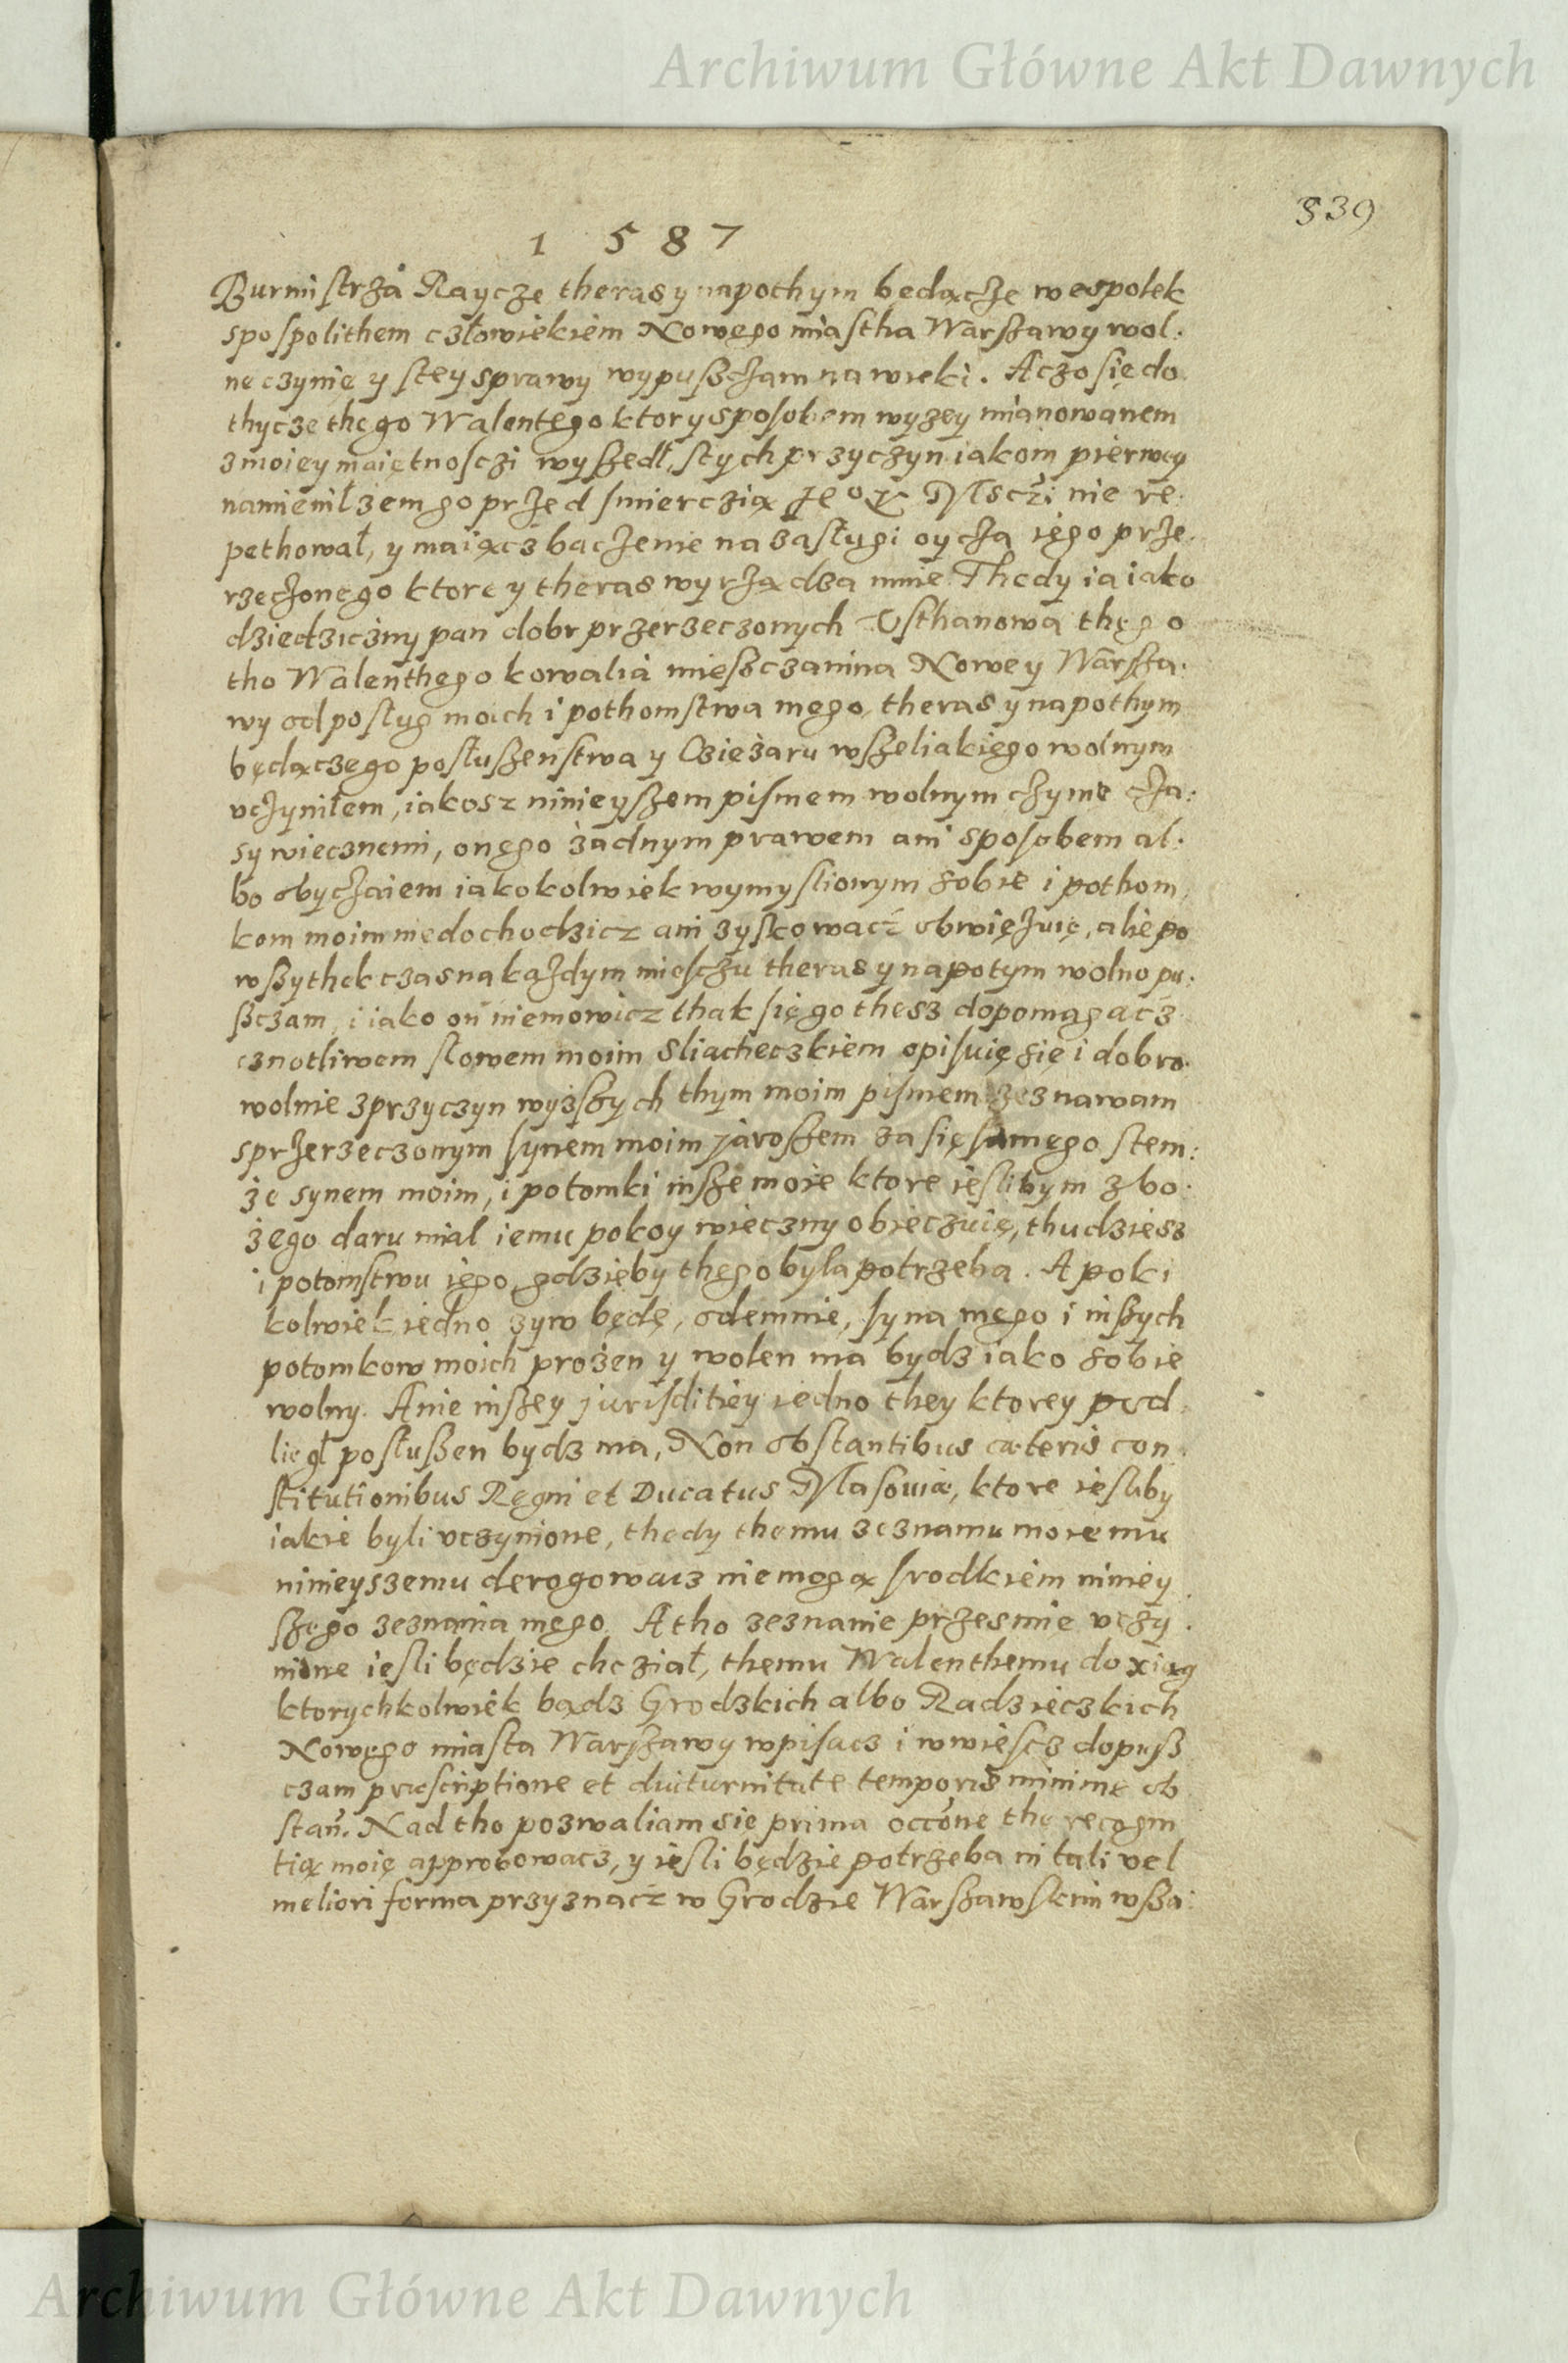 Archiwum Główne Akt Dawnych
839
1 5 8 7
Burmistrza Raycze theras y napothym będącze wespolek
spospolithem człowiekiem Nowego miastha Warszawy wol:
ne czynię y stey sprawy wypuszczam na wieki. Aczo się do
thycze thego Walentego ktory sposobem wyzey mianowanem
z moiey maiętnosczi wyszedł, stych przyczyn iakom pierwey
namienił zem go przed smierczią Msczi nie re:
pethował, y maiącz baczenie na zasługi oycza iego prze:
rzeczonego ktore y theras wyrządza mnie. Thedy ia iako
dziedziczny pan dobr przerzeczonych Vsthanowa thego
tho Walenthego kowalia mieszczanina Nowey Warsza:
wy od posług moich i pothomstwa mego, theras y napothym
będączego posłuszenstwa y Cziężaru wszeliakiego wolnym
vczyniłem, iakosz ninieyszem pismem wolnym czynię cza:
sy wiecznemi, onego żadnym prawem ani sposobem al:
bo obyczaiem iakokolwiek wymyslionym sobie i pothom
kom moim niedochodzicz ani zyskowacz obwięzuię, alie po
wszythek czas na każdym miesczu theras y napotym wolno pu:
szczam, i iako on niemowicz thak się go thesz dopomagacz
cznotliwem słowem moim sliacheczkiem opisuię się i dobro:
wolnie z przyczyn wyższych thym moim pismem zeznawam
sprzerzeczonym synem moim jaroszem za się samego stem:
że synem moim, i potomki insze moie ktore ieslibym z bo:
żego daru mial iemu pokoy wieczny obieczuię, thudziesz
i potomstwu iego, gdzieby thego była potrzeba. A poki
kolwiek iedno zyw będę, odemnie, syna mego i inszych
potomkow moich prożen y wolen ma bydz iako sobie
wolny. A nie inszey jurisditiey iedno they ktorey pod
liegł posłuszen bydz ma, Non obstantibus cæteris con:
stitutionibus Regni et Ducatus Masoviæ, ktore iesliby
iakie byli vczynione, thedy themu zeznamu moiemu
ninieyszemu derogowacz niemogą srodkiem niniey
szego zeznania mego. A tho zeznanie przesmie vczy:
nione iesli będzie chcział, themu Walenthemu do xiąg
ktorychkolwiek bądz Grodzkich albo Radzieczkich
Nowego miasta Warszawy wpisacz i wwiescz dopusz
czam præscriptione et diuturnitate temporis minime ob
stan. Nad tho pozwaliam się prima occone the recogni
tią moię approbowacz, y iesli będzie potrzeba in tali vel
meliori forma przyznacz w Grodzie Warszawskim wsza:
Archiwum Główne Akt Dawnych